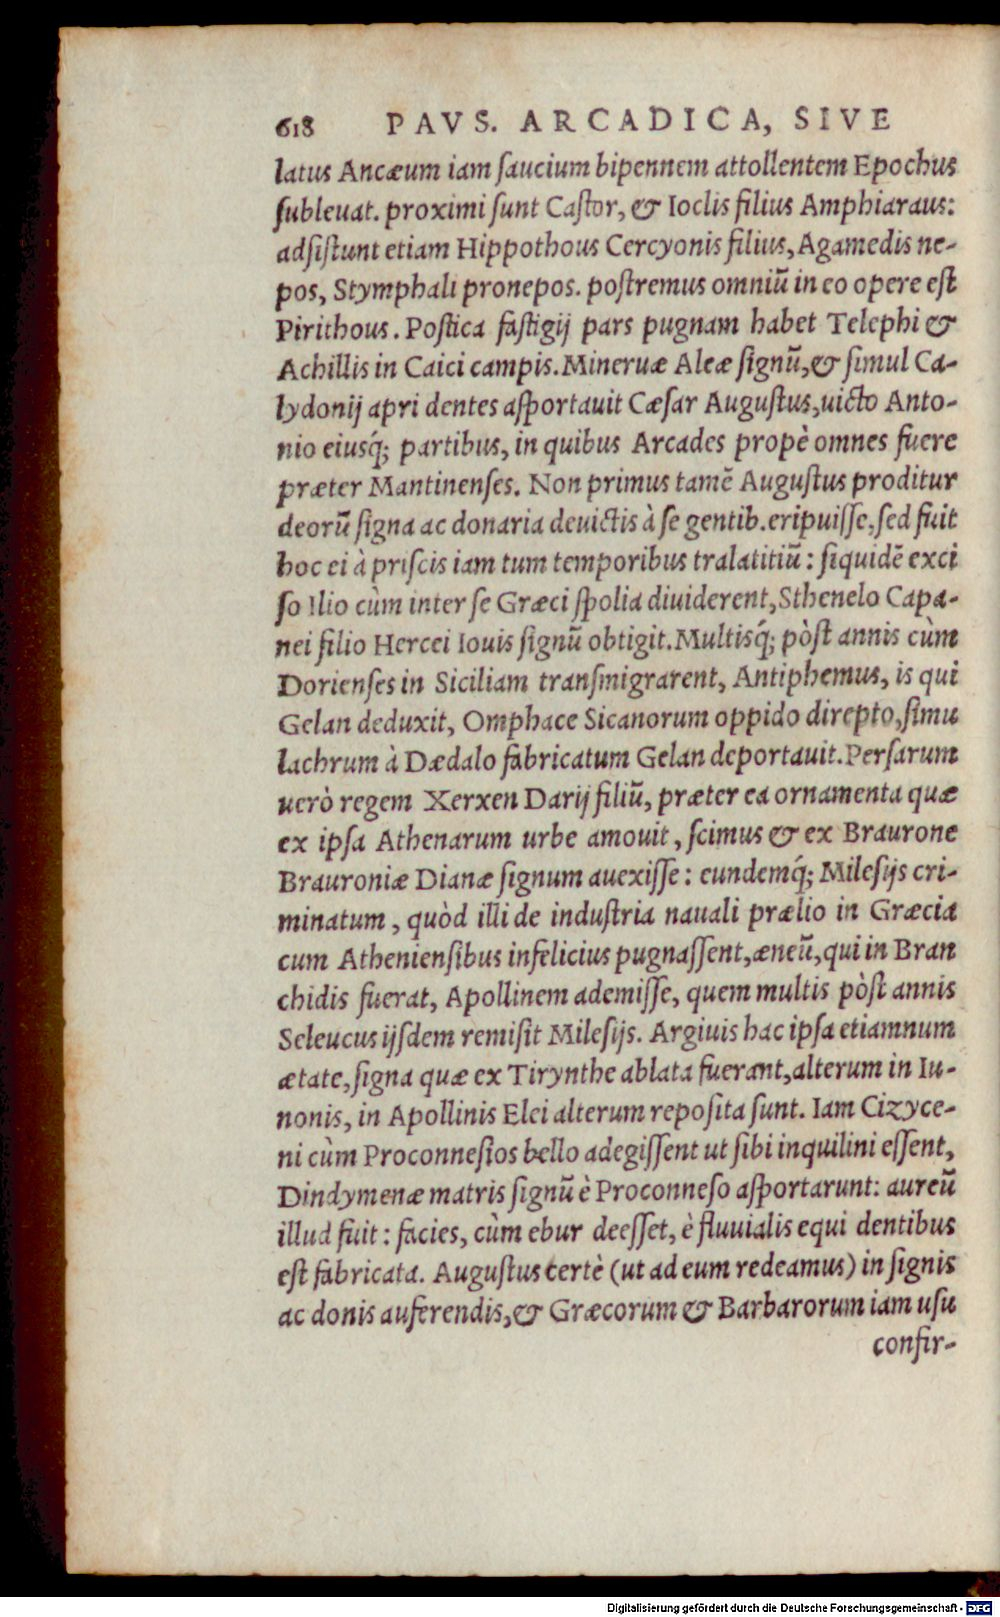 618 PAVS. ARCADICA, SIVE
latus Ancæum iam ſaucium bipennem attollentem Epochus
ſubleuat. proximi ſunt Caſtor, & Ioclis filius Amphiaraus:
adſiſtunt etiam Hippothous Cercyonis filius, Agamedis ne-
pos, Stymphali pronepos. poſtremus omniũ in eo opere eſt
Pirithous. Poſtica faſtigij pars pugnam habet Telephi &
Achillis in Caici campis. Mineruæ Aleæ ſignũ, & ſimul Ca-
lydonij apri dentes aſportauit Cæſar Auguſtus, uicto Anto-
nio eiusq́; partibus, in quibus Arcades propè omnes fuere
præter Mantinenſes. Non primus tamẽ Auguſtus proditur
deorũ ſigna ac donaria deuictis à ſe gentib. eripuiſſe, ſed fuit
hoc ei à priſcis iam tum temporibus tralatitiũ: ſiquidẽ exci
ſo Ilio cùm inter ſe Græci ſpolia diuiderent, Sthenelo Capa-
nei filio Hercei Iouis ſignũ obtigit. Multisq́; pòſt annis cùm
Dorienſes in Siciliam tranſmigrarent, Antiphemus, is qui
Gelan deduxit, Omphace Sicanorum oppido direpto, ſimu
lachrum à Dædalo fabricatum Gelan deportauit. Perſarum
uerò regem Xerxen Darij filiũ, præter ea ornamenta quæ
ex ipſa Athenarum urbe amouit, ſcimus & ex Braurone
Brauroniæ Dianæ ſignum auexiſſe: eundemq́; Mileſijs cri-
minatum, quòd illi de induſtria nauali prælio in Græcia
cum Athenienſibus infelicius pugnaſſent, æneũ, qui in Bran
chidis fuerat, Apollinem ademiſſe, quem multis pòſt annis
Seleucus ijſdem remiſit Mileſijs. Argiuis hac ipſa etiamnum
ætate, ſigna quæ ex Tirynthe ablata fuerant, alterum in Iu-
nonis, in Apollinis Elei alterum repoſita ſunt. Iam Cizyce-
ni cùm Proconneſios bello adegiſſent ut ſibi inquilini eſſent,
Dindymenæ matris ſignũ è Proconneſo aſportarunt: aureũ
illud fuit: facies, cùm ebur deeſſet, è fluuialis equi dentibus
eſt fabricata. Auguſtus certè (ut ad eum redeamus) in ſignis
ac donis auferendis, & Græcorum & Barbarorum iam uſu
confir-
Digitalisierung gefördert durch die Deutsche Forschungsgemeinschaft - DFG